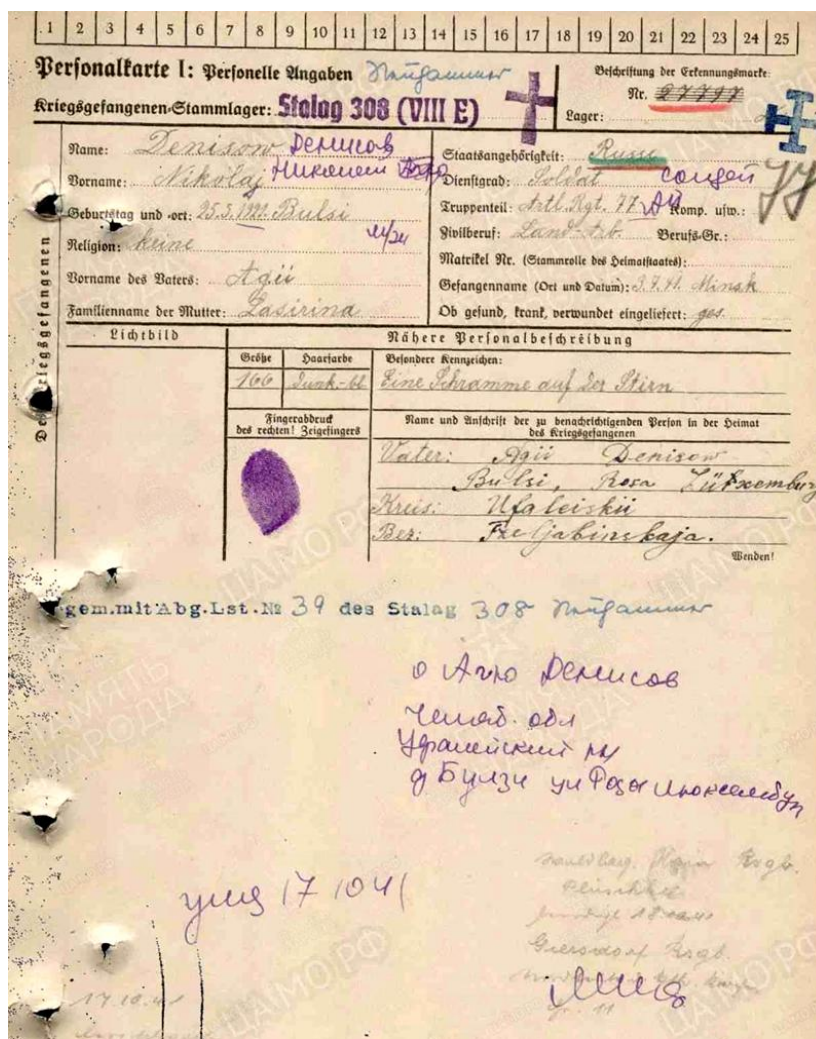 1 2 3 4 5 6 7 8 9 10 11 12 13 14 15 16 17 18 19 20 21 22 23 24 25
Personalkarte I: Personelle Angaben Neuhammer
Kriegsgefangenen-Stammlager: Stalag 308 (VIII E)
Beschriftung der Erkennungsmarke:
Nr. 27797
Lager:
Des Kriegsgefangenen
Name: Denisow Денисов
Vorname: Nikolaj Николай
Geburtstag und -ort: 25.5.1921 Bulsi
Religion: keine
Vorname des Vaters: Agii
Familienname der Mutter: Lasirina
Staatsangehörigkeit: Russe
Dienstgrad: Soldat солдат
Truppenteil: Artl. Rgt. 77 АП Komp. usw.: 77
Zivilberuf: Land-Arb. Berufs-Gr.:
Matrikel Nr. (Stammrolle des Heimatstaates):
Gefangenname (Ort und Datum): 3.7.41. Minsk
Ob gesund, krank, verwundet eingeliefert: ges.
Lichtbild
Nähere Personalbeschreibung
Größe Haarfarbe Besondere Kennzeichen:
166 Dunk.-bl. Eine Schramme auf der Stirn
Fingerabdruck
des rechten! Zeigefingers
Name und Anschrift der zu benachrichtigenden Person in der Heimat
des Kriegsgefangenen
Vater: Agii Denisow
Bulsi, Rosa Lütxemburg
Kreis: Ufaleiskii
Bez: Tzeljabinskaja.
Wenden!
gem.mit Abg.Lst.№ 39 des Stalag 308 Neuhammer
о Агю Денисов
Челяб. обл
Уфалейский рн
д Булзи ул Роза Люксембур
17 10 41
Giersdorf Rsgb.
17.10.41
ПАМЯТЬ
НАРОДА
ЦАМО РФ